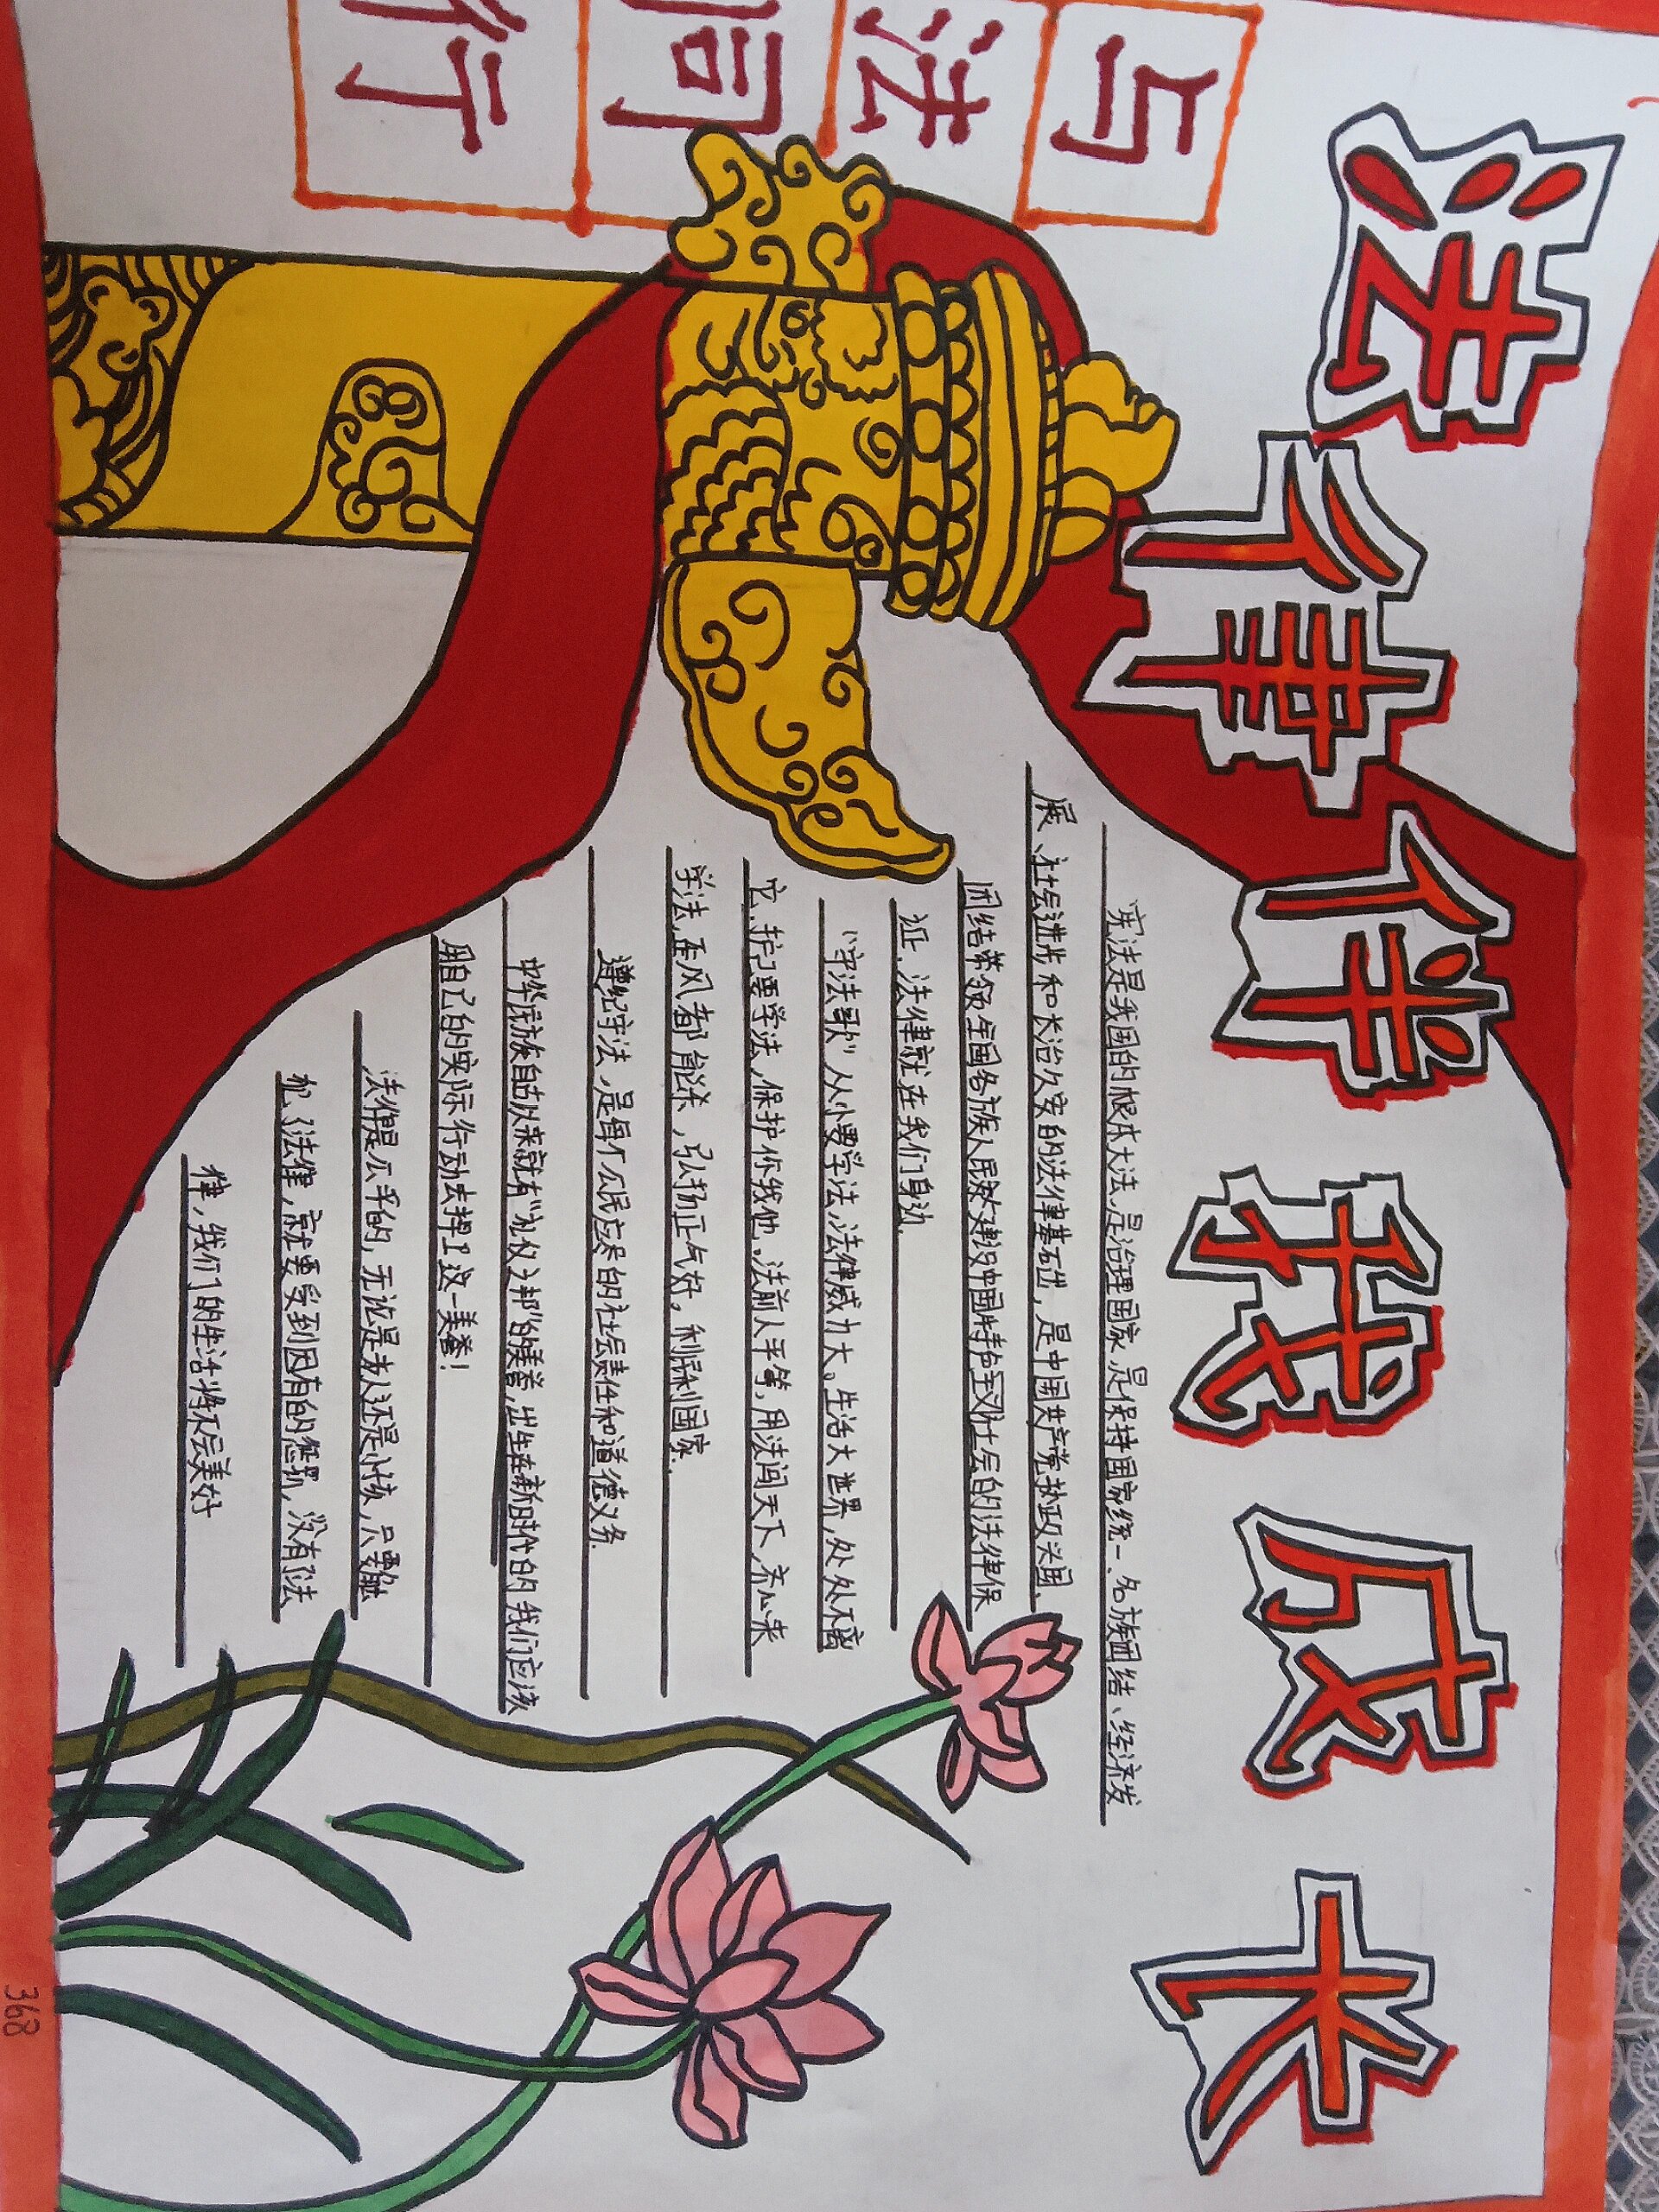 法律伴我成长
与法同行
宪法是我国的根本大法,是治理国家,是保持国家统一、名族团结、经济发
展、社会进步和长治久安的法律基础,是中国共产党执政兴国,
团结带领全国各族人民建设中国特色主义社会的法律保
证,法律就在我们身边.
“守法歌”从小要学法,法律威力大。生活大世界,处处不离
它.护卫要学法,保护你我他。法前人平等,用法闯天下,齐心来
学法,歪风都能杀,弘扬正气好,利民利国家.
遵纪守法,是每个公民应尽的社会责任和道德义务.
中华民族自古以来就有“礼仪之邦”的美誉,出生在新时代的我们应该
用自己的实际行动去捍卫这一美誉!
法律是公平的,无论是老人还是小孩,只要触
犯了法律,就要受到因有的惩罚,没有了法
律,我们的生活将不会美好
368